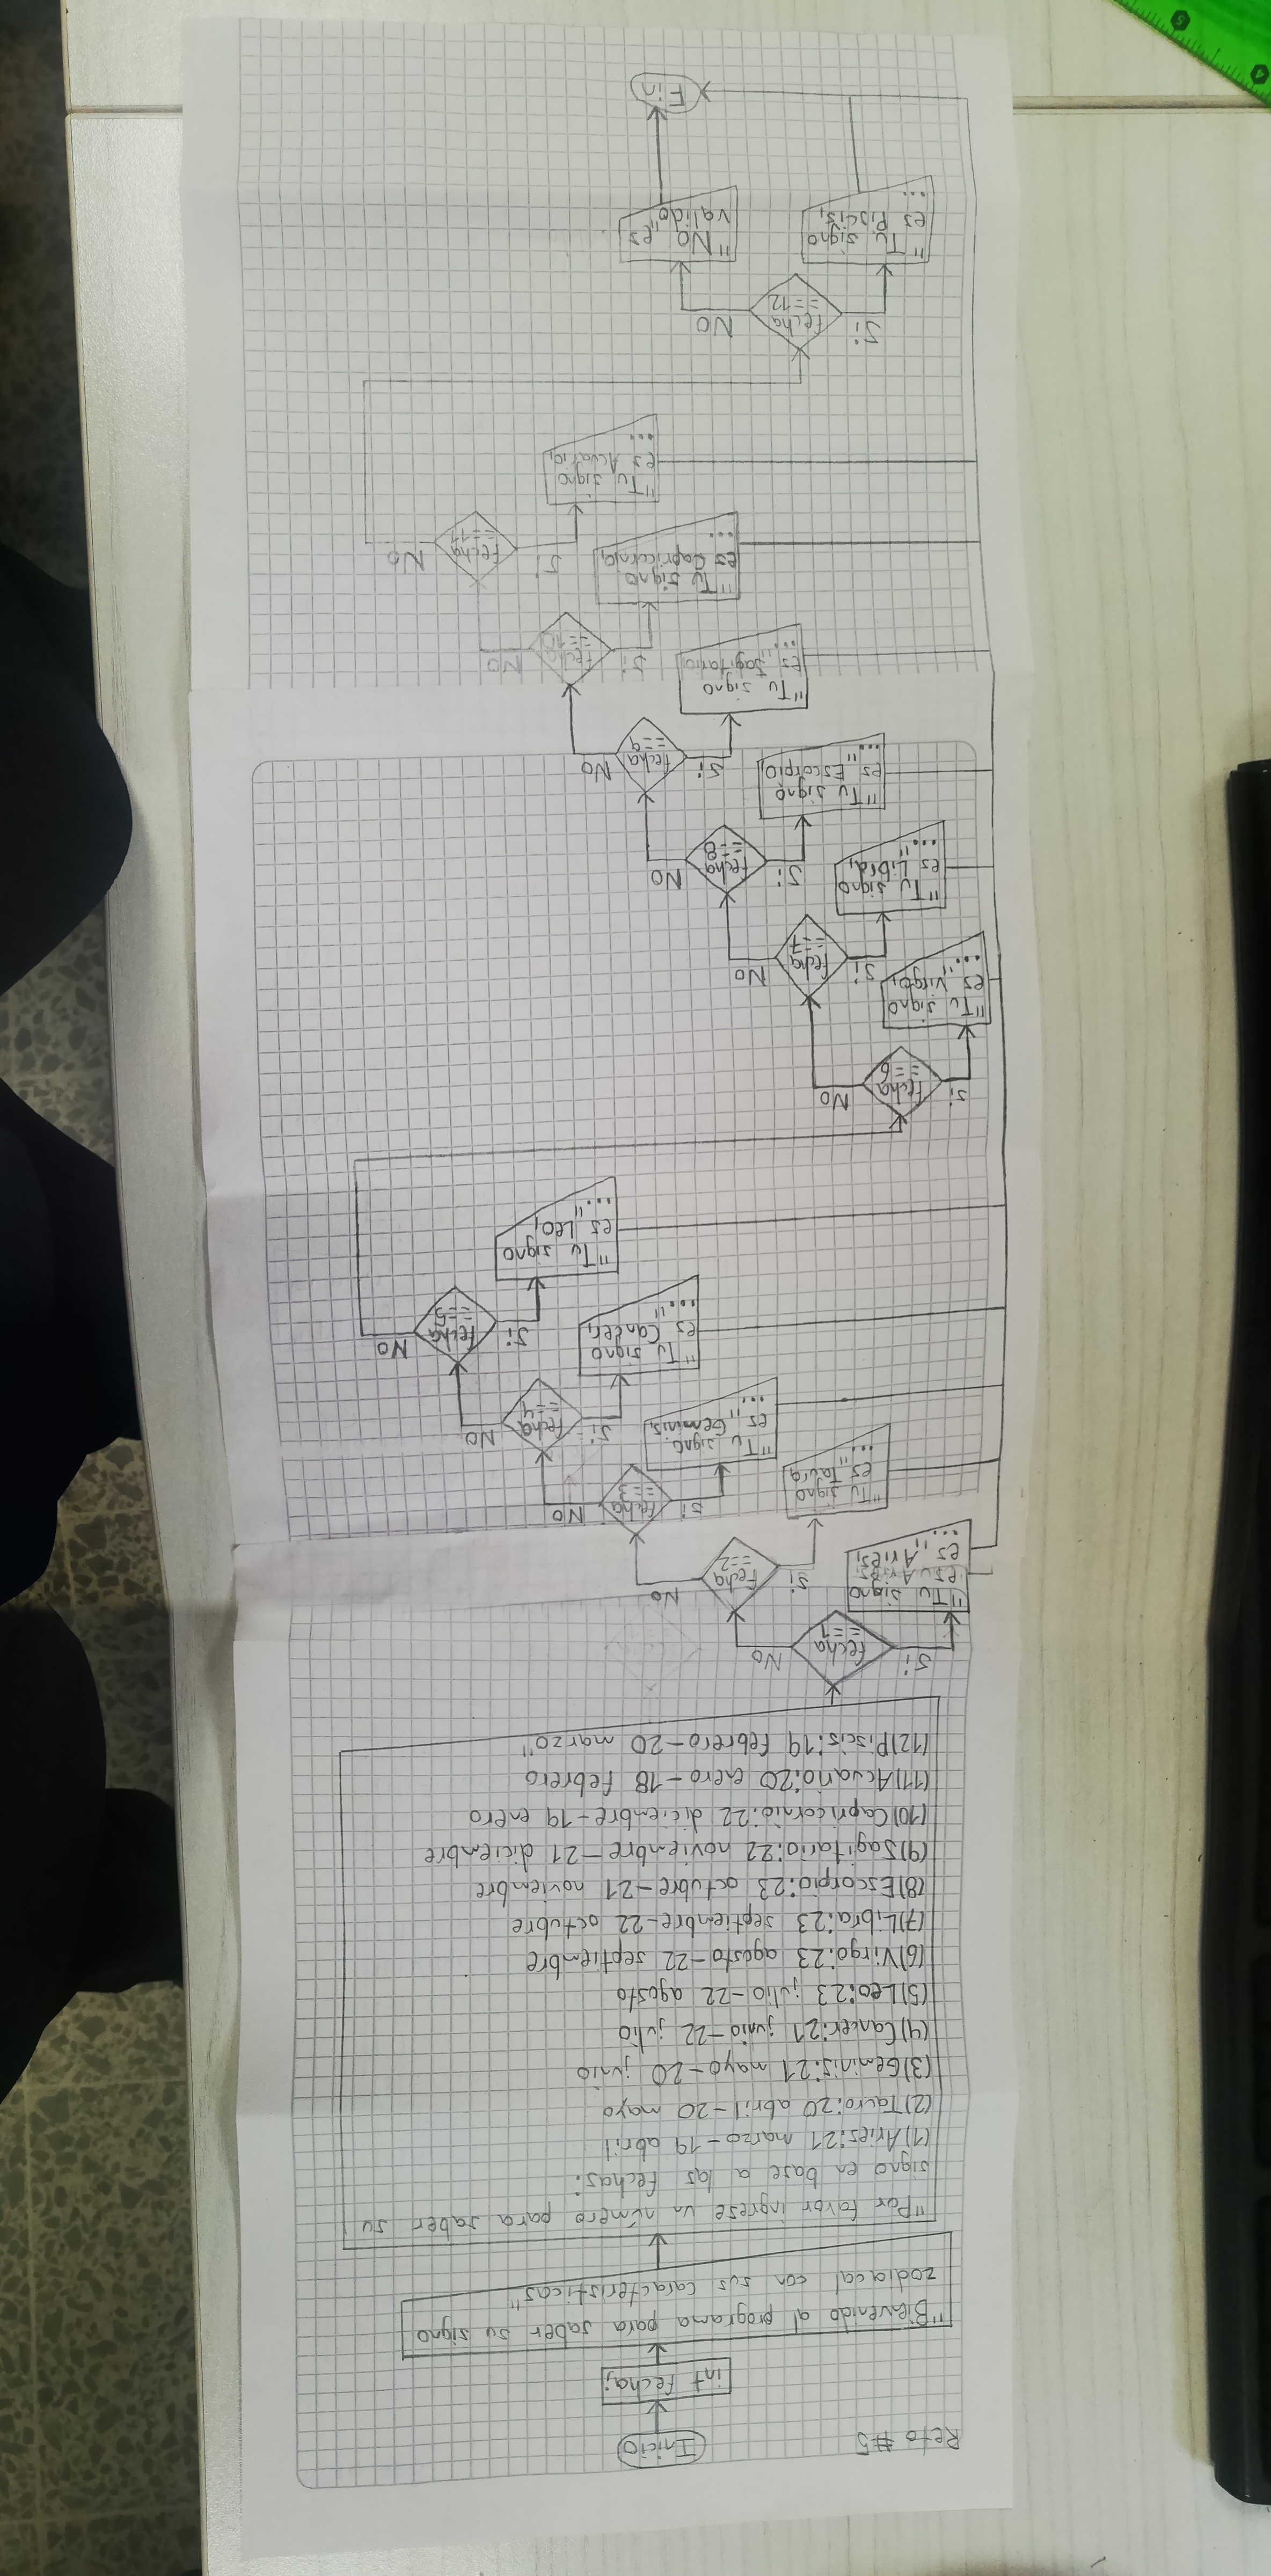 Reto #5
Inicio
int fecha;
"Bienvenido al programa para saber su signo
zodiacal con sus caracteristicas"
"Por favor ingrese un número para saber su
signo en base a las fechas:
(1)Aries:21 marzo-19 abril
(2)Tauro:20 abril-20 mayo
(3)Geminis:21 mayo-20 junio
(4)Cancer:21 junio-22 julio
(5)Leo:23 julio-22 agosto
(6)Virgo:23 agosto-22 septiembre
(7)Libra:23 septiembre-22 octubre
(8)Escorpio:23 octubre-21 noviembre
(9)Sagitario:22 noviembre-21 diciembre
(10)Capricornio:22 diciembre-19 enero
(11)Acuario:20 enero-18 febrero
(12)Piscis:19 febrero-20 marzo"
Si
fecha
==1
No
"Tu signo
es Aries,
es Aries,
..."
Si
fecha
==2
No
"Tu signo
es Tauro,
..."
Si
fecha
==3
No
"Tu signo
es Geminis,
..."
Si
fecha
==4
No
"Tu signo
es Cancer,
..."
Si
fecha
==5
No
"Tu signo
es Leo,
..."
Si
fecha
==6
No
"Tu signo
es Virgo,
..."
Si
fecha
==7
No
"Tu signo
es Libra,
..."
Si
fecha
==8
No
"Tu signo
es Escorpio,
..."
Si
fecha
==9
No
"Tu signo
es Sagitario
..."
Si
fecha
==10
No
"Tu signo
es Capricornio,
...
Si
fecha
==11
No
"Tu signo
es Acuario,
...
Si
fecha
==12
No
"Tu signo
es Piscis,
...
"No es
valido"
Fin
4
5